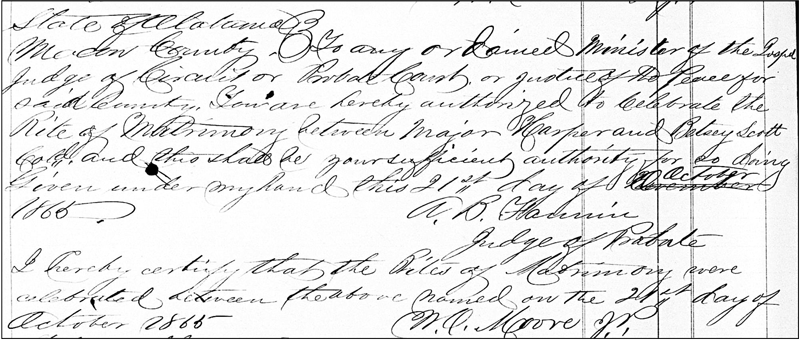 State of Alabama
Macon County To any ordained Minister of the Gospel
Judge of Circuit or Probate Court, or justice of the Peace for
said County. You are hereby authorized to celebrate the
Rite of Matrimony between Major Harper and Betsey Scott
Cold. and this shall be your sufficient authority for so doing
Given under my hand this 21st day of October November
1865. A. B. Fannin
Judge of Probate
I hereby certify that the Rites of Matrimony were
celebrated between the above named on the 21st day of
October 1865 W. O. Moore J.P.